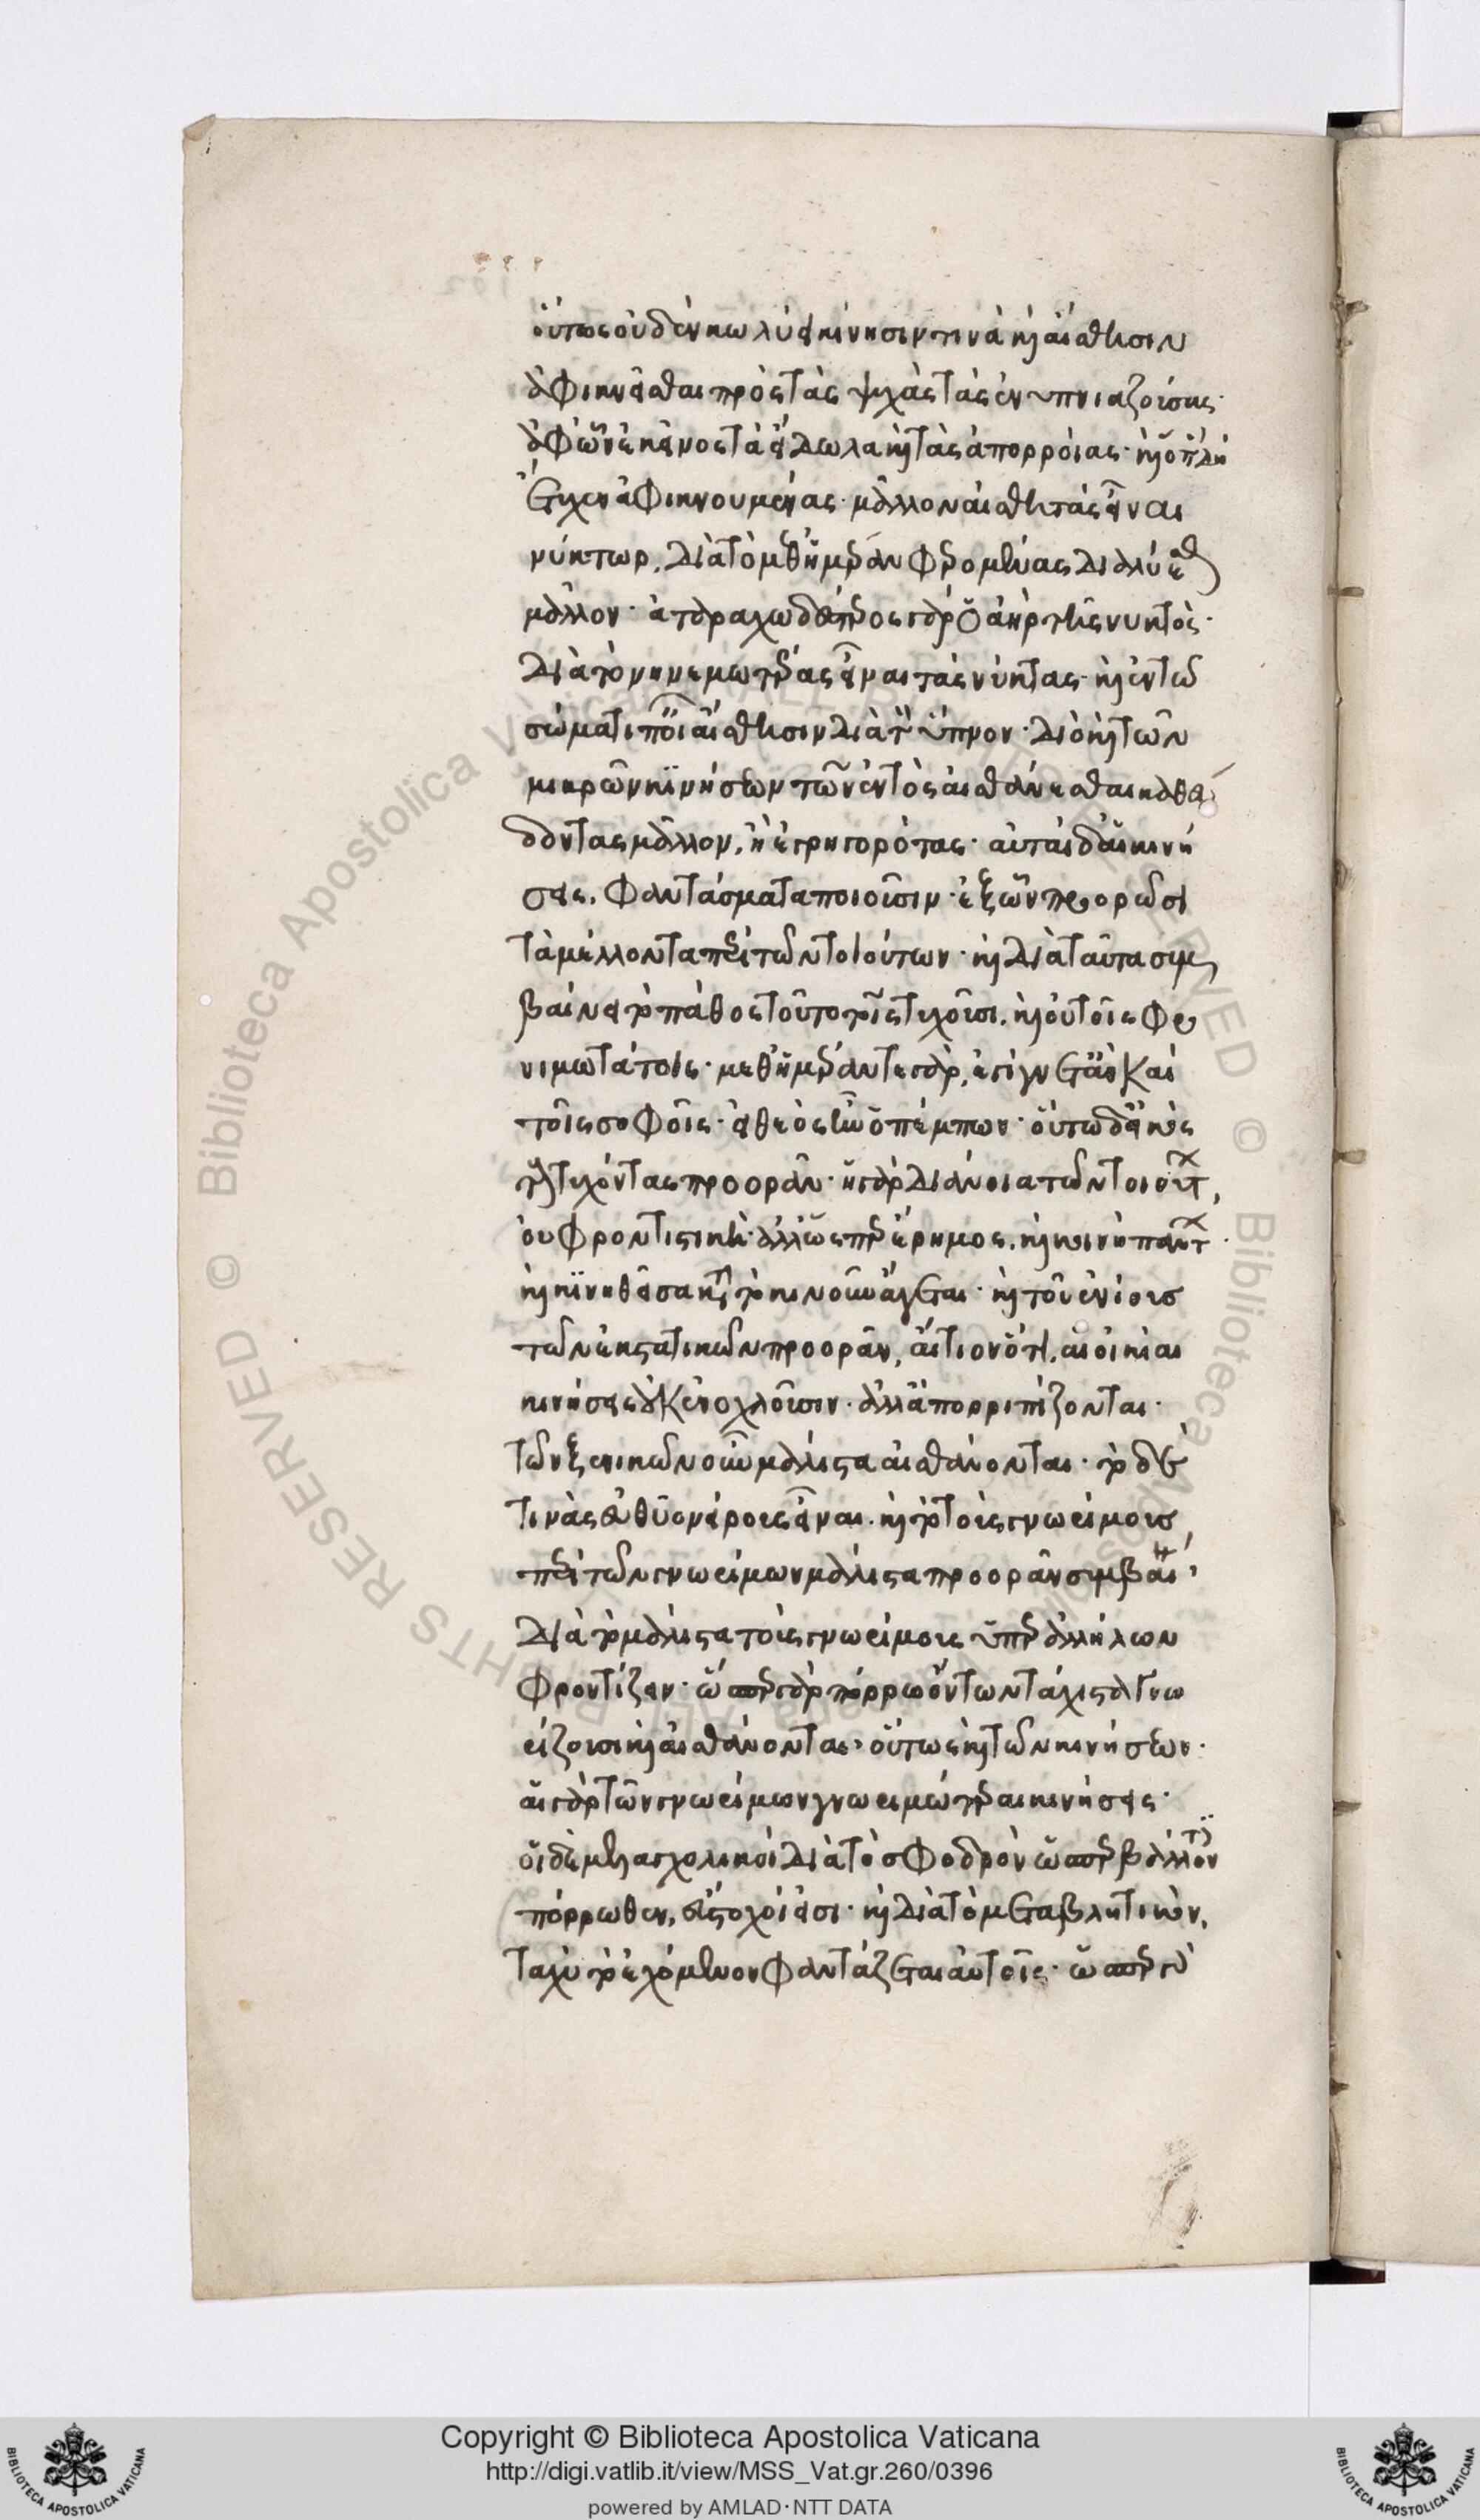 οὕτως οὐδὲν κωλύει κίνησιν τινὰ καὶ αἴσθησιν
ἀφικνεῖσθαι πρὸς τὰς ψυχὰς τὰς ἐνυπνιαζούσας·
ἀφ' ὧν ἐκεῖνος τὰ εἴδωλα καὶ τὰς ἀπορροίας· καὶ ὅπῃ δὴ
ἔτυχεν ἀφικνουμένας· μᾶλλον αἰσθητὰς εἶναι
νύκτωρ, διὰ τὸ μεθ' ἡμέραν φερομένας διαλύεσθαι
μᾶλλον· ἀταραχωδέστερος γὰρ ὁ ἀὴρ τῆς νυκτὸς·
διὰ τὸ νηνεμωτέρας εἶναι τὰς νύκτας· καὶ ἐν τῷ
σώματι ποιεῖ αἴσθησιν διὰ τὸν ὕπνον· διὸ καὶ τῶν
μικρῶν κινήσεων τῶν ἐντὸς αἰσθάνεσθαι καθεύ
δοντας μᾶλλον, ἢ ἐγρηγορότας· αὗται δ' αἱ κινή
σεις, φαντάσματα ποιοῦσιν· ἐξ ὧν προορῶσι
τὰ μέλλοντα περὶ τῶν τοιούτων· καὶ διὰ ταῦτα συμ
βαίνει τὸ πάθος τοῦτο τοῖς τυχοῦσι, καὶ οὐ τοῖς φρο
νιμωτάτοις· μεθ' ἡμέραν τε γὰρ, ἐγίγνετ' ἂν καὶ
τοῖς σοφοῖς· εἰ θεὸς ἦν ὁ πέμπων· οὕτω δ' εἰκὸς
τοὺς τυχόντας προορᾶν· ἡ γὰρ διάνοια τῶν τοιούτων,
οὐ φροντιστικὴ· ἀλλ' ὥσπερ ἔρημος, καὶ κενὴ πάντων·
καὶ κινηθεῖσα κατὰ τὸ κινοῦν ἄγεται· καὶ τοῦ ἐνίους
τῶν ἐκστατικῶν προορᾶν, αἴτιον ὅτι, αἱ οἰκεῖαι
κινήσεις οὐκ ἐνοχλοῦσιν· ἀλλ' ἀπορριπίζονται·
τῶν ξενικῶν οὖν μάλιστα αἰσθάνονται· τὸ δέ
τινὰς εὐθυονείρους εἶναι· καὶ τὸ τοὺς γνωρίμους
περὶ τῶν γνωρίμων μάλιστα προορᾶν συμβαίνει,
διὰ τὸ μάλιστα τοὺς γνωρίμους ὑπὲρ ἀλλήλων
φροντίζειν· ὥσπερ γὰρ πόρρω ὄντων τάχιστα γνω
ρίζουσι καὶ αἰσθάνονται, οὕτως καὶ τῶν κινήσεων·
αἱ γὰρ τῶν γνωρίμων γνωριμώτεραι κινήσεις·
οἱ δὲ μελαγχολικοὶ διὰ τὸ σφοδρὸν ὥσπερ βάλλοντες
πόρρωθεν, εὔστοχοί εἰσι· καὶ διὰ τὸ μεταβλητικὸν,
ταχὺ τὸ ἐχόμενον φαντάζεται αὐτοῖς· ὥσπερ γὰρ
Copyright © Biblioteca Apostolica Vaticana
http://digi.vatlib.it/view/MSS_Vat.gr.260/0396
powered by AMLAD·NTT DATA